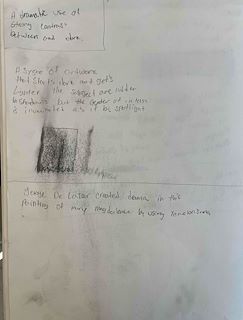 A dramatic use of
strong contrast
between and dark
A type of artwork
that starts dark and gets
lighter the subject are hidden
in shadows but the center of
is illuminated as if by spotlight
George De Latour created drama in this
Painting of mary magdalene by using